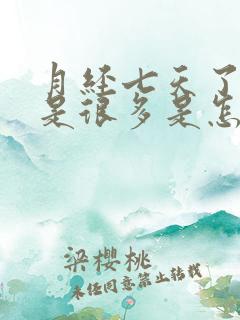 月经七天了
是很多是怎
梁樱桃
未经同意禁止转载